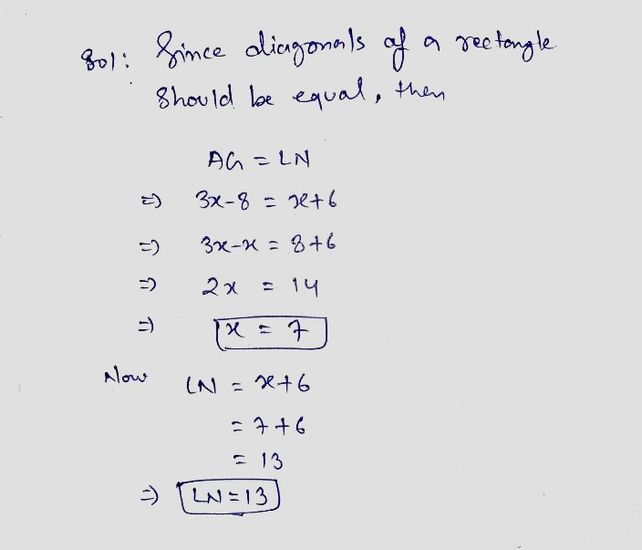 Sol: Since diagonals of a rectangle
should be equal, then
AG = LN
⇒ 3x-8 = x+6
⇒ 3x-x = 8+6
⇒ 2x = 14
⇒ x = 7
Now LN = x+6
= 7+6
= 13
⇒ LN=13